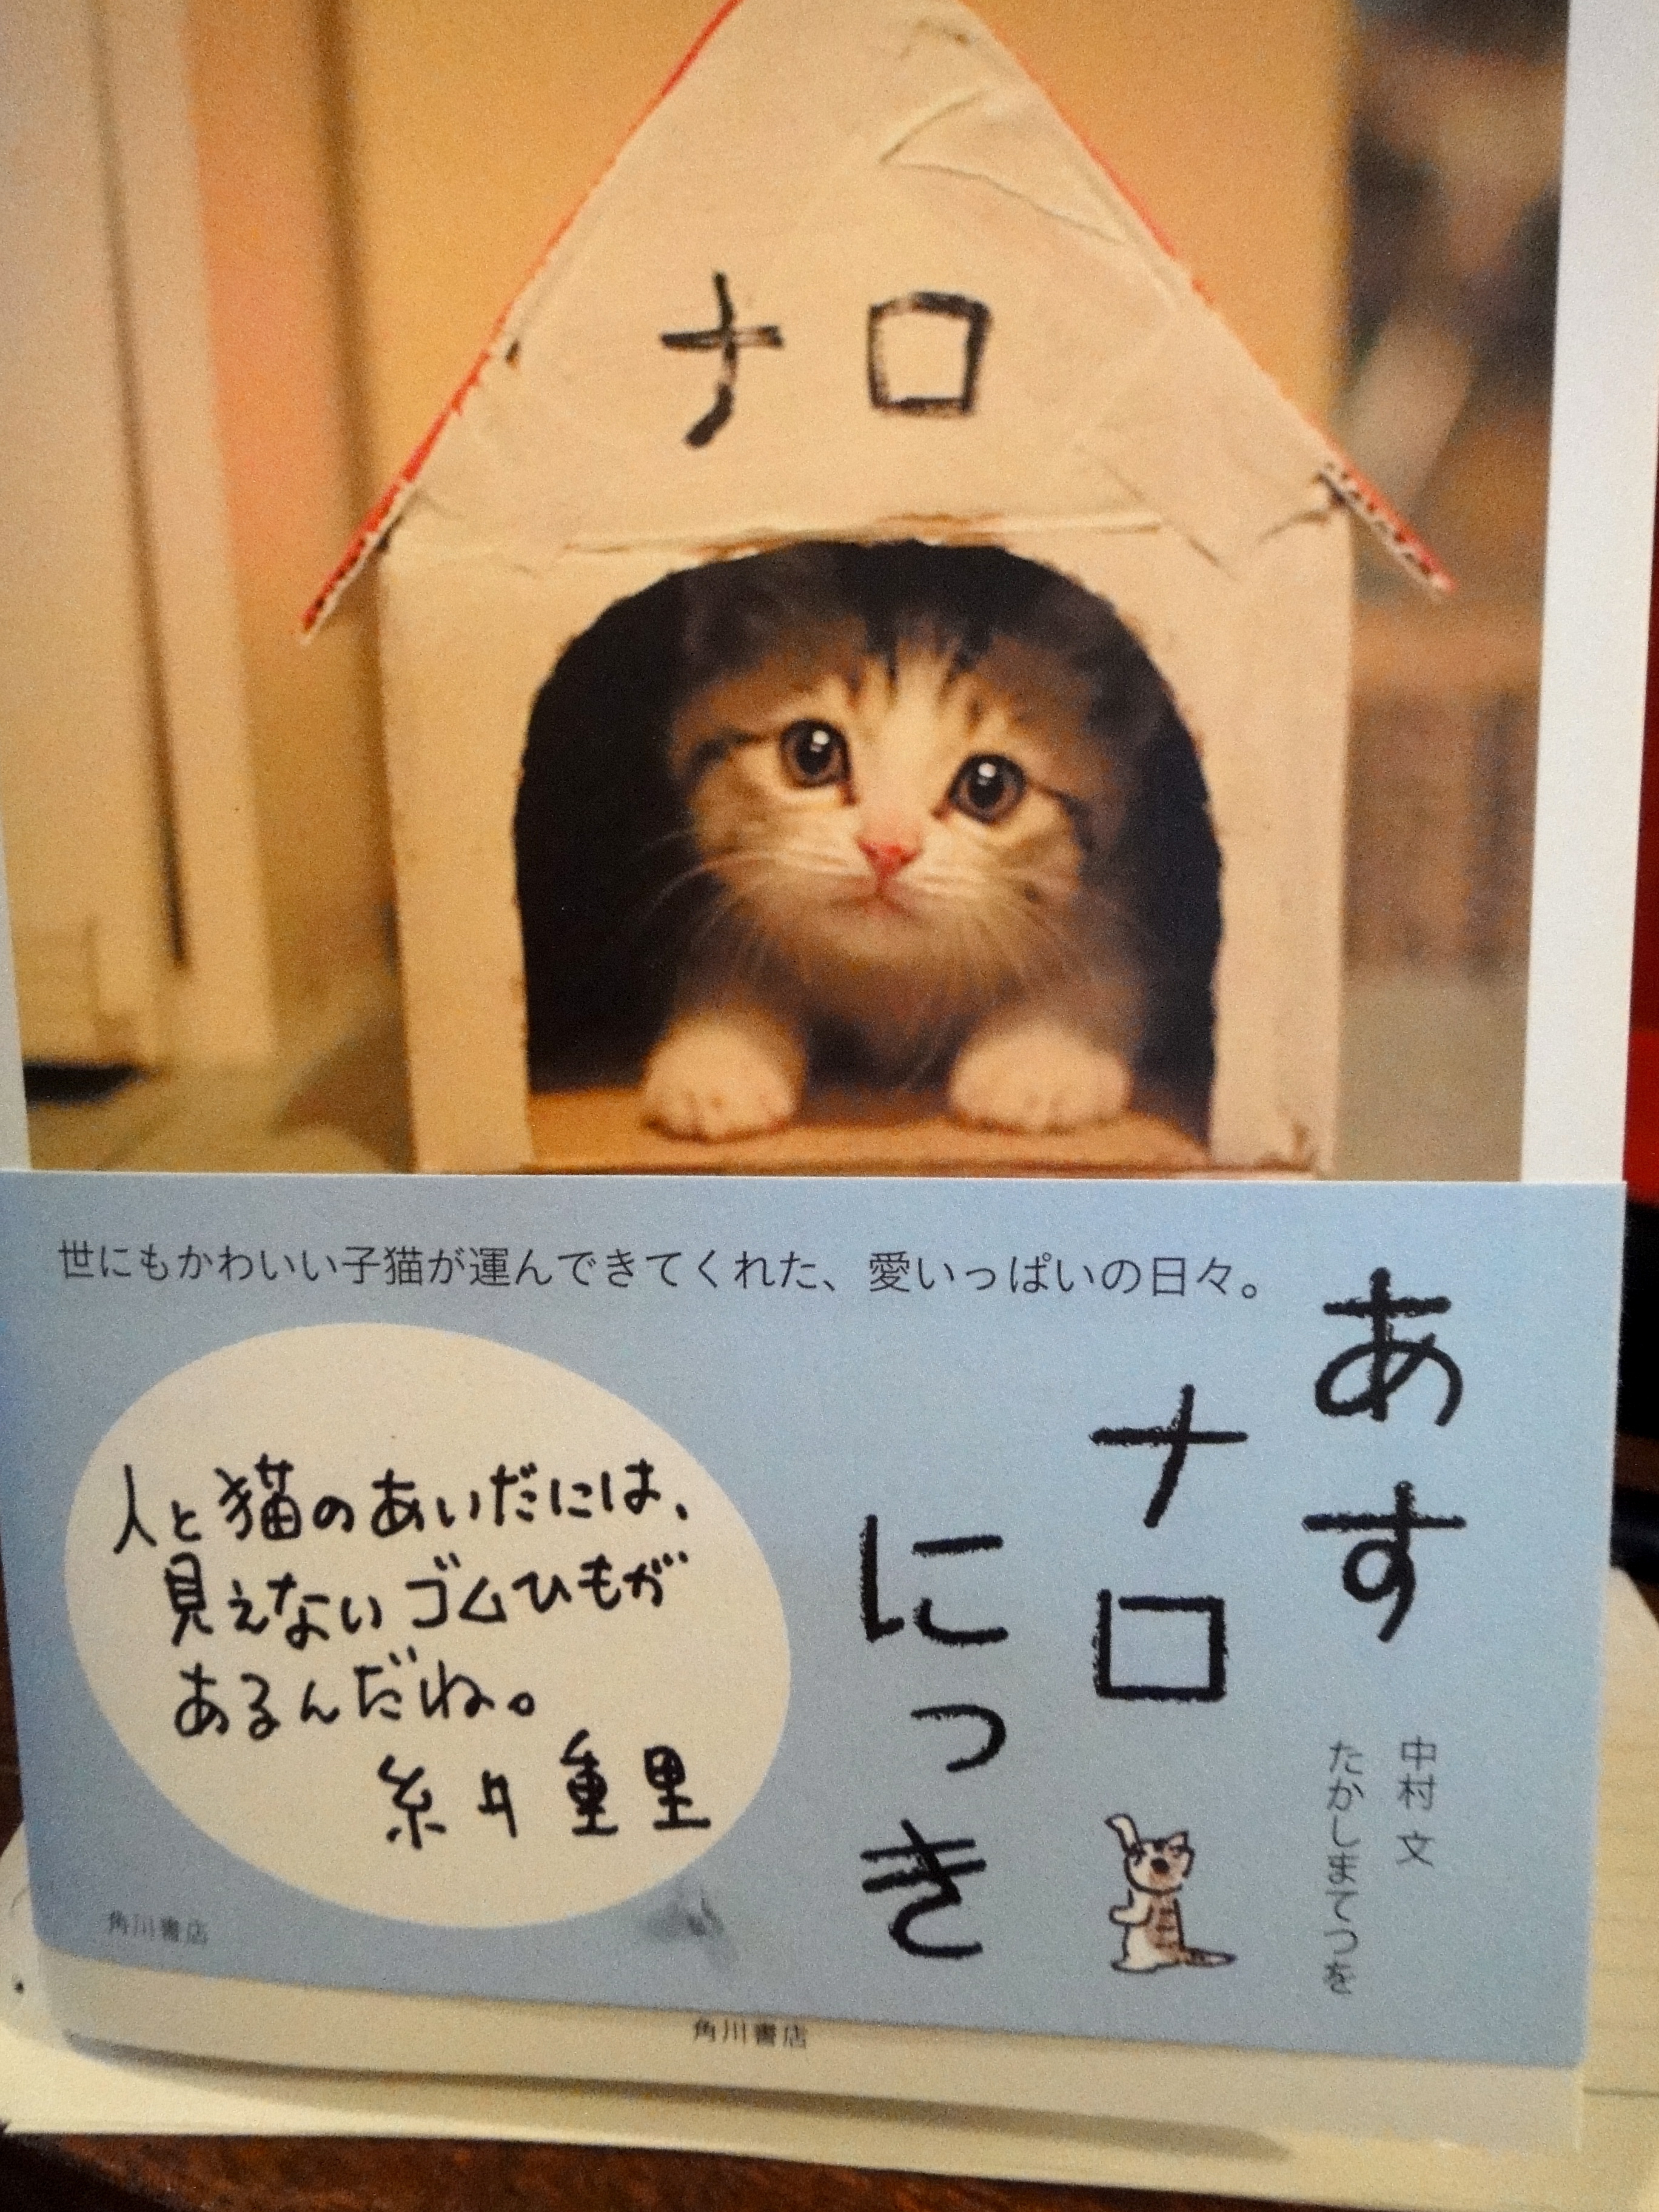 ナロ
世にもかわいい子猫が運んできてくれた、愛いっぱいの日々。
あす
ナロ
にっき
中村 文
たかしまてつを
人と猫のあいだには、
見えないゴムひもが
あるんだね。
糸井重里
角川書店
角川書店